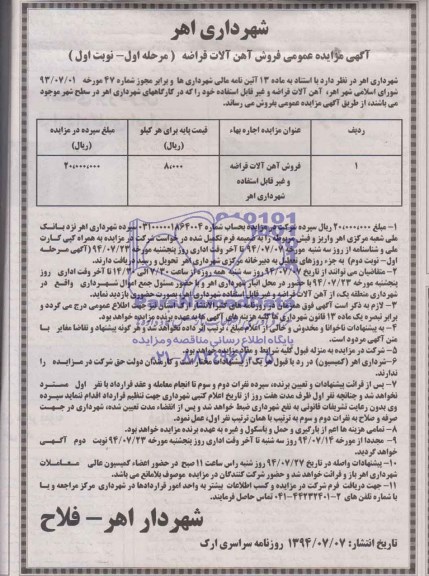 شهرداری اهر
آگهی مزایده عمومی فروش آهن آلات قراضه (مرحله اول- نوبت اول)
شهرداری اهر در نظر دارد با استناد به ماده ۱۳ آئین نامه مالی شهرداری ها و برابر مجوز شماره ۴۷ مورخه ۹۳/۰۷/۰۱
شورای اسلامی شهر اهر، آهن آلات قراضه و غیر قابل استفاده خود را که در کارگاههای شهرداری اهر در سطح شهر موجود
می باشند، از طریق آگهی مزایده عمومی بفروش می رساند.
ردیف عنوان مزایده اجاره بهاء قیمت پایه برای هر کیلو (ریال) مبلغ سپرده در مزایده (ریال)
۱ فروش آهن آلات قراضه و غیر قابل استفاده شهرداری اهر ۸,۰۰۰ ۲۰,۰۰۰,۰۰۰
۱- مبلغ ۲۰,۰۰۰,۰۰۰ ریال سپرده شرکت در مزایده بحساب شماره ۰۳۱۰۰۰۰۰۱۸۶۴۰۰۴ سپرده شهرداری اهر نزد بانک
ملی شعبه مرکزی اهر واریز و فیش مربوطه را به ضمیمه فرم تکمیل شده در خواست شرکت در مزایده به همراه کپی کارت
ملی و شناسنامه از روز سه شنبه مورخه ۹۴/۰۷/۰۷ تا آخر وقت اداری روز پنجشنبه مورخه ۹۴/۰۷/۲۳ (آگهی مرحله
اول- نوبت دوم) به جزء روزهای تعطیل به دبیرخانه مرکزی شهرداری اهر تحویل و رسید دریافت دارند.
۲- متقاضیان می توانند از تاریخ ۹۴/۰۷/۰۷ روز سه شنبه همه روزه از ساعت ۷/۳۰ الی ۱۴/۳۰ تا آخر وقت اداری روز
پنجشنبه مورخه ۹۴/۰۷/۲۳ با حضور در محل انبار شهرداری اهر و با حضور مسئول جمع اموال شهرداری واقع در
شهرداری منطقه یک، از آهن آلات قراضه و غیر قابل استفاده شهرداری اهر، بصورت حضوری بازدید نماید.
۳- لازم به ذکر است آگهی فوق جهت اطلاع عمومی درج می گردد و
برابر تبصره یک ماده ۱۳ قانون شهرداری ها کلیه هزینه های آگهی ها به عهده برنده مزایده خواهد بود.
۴- به پیشنهادات ناخوانا و مخدوش و خالی از اعلام مبلغ، ترتیب اثر داده نخواهد شد و هر گونه پیشنهاد و تقاضا مغایر با
متن آگهی مردود است.
۵- شرکت در مزایده به منزله قبول کلیه شرایط و مفاد مزایده خواهد بود.
۶- شهرداری اهر (کمیسیون) در رد یا قبول هر یک از پیشنهادات مختار است و کارمندان دولت حق شرکت در مزایده را
ندارند.
۷- پس از قرائت پیشنهادات و تعیین برنده، سپرده نفرات دوم و سوم تا انجام معامله و عقد قرارداد با نفر اول مسترد
نخواهد شد و چنانچه نفر اول ظرف مدت هفت روز از تاریخ اعلام کتبی شهرداری جهت تنظیم قرارداد اقدام ننماید سپرده
وی بدون رعایت تشریفات قانونی به نفع شهرداری ضبط خواهد شد و پس از انقضاء مدت تعیین شده، شهرداری در جهت
صرفه و صلاح به نفرات دوم و سوم به ترتیب با همان ترتیب نفر اول، عمل نمود.
۸- تمامی هزینه ها اعم از بارگیری و حمل و باسکول و غیره به عهده برنده مزایده خواهد بود.
۹- مجددا از مورخه ۹۴/۰۷/۱۴ روز سه شنبه تا آخر وقت اداری روز پنجشنبه مورخه ۹۴/۰۷/۲۳ نوبت دوم آگهی
خواهد گردید.
۱۰- پیشنهادات واصله در تاریخ ۹۴/۰۷/۲۷ روز شنبه راس ساعت ۱۱ صبح در حضور اعضاء کمیسیون عالی معاملات
شهرداری اهر باز و قرائت خواهد شد و حضور شرکت کنندگان در مزایده موصوف بلامانع می باشد.
۱۱- جهت دریافت فرم شرکت در مزایده و کسب اطلاعات بیشتر به واحد امور قراردادها در شهرداری مرکز مراجعه و یا
با شماره تلفن های ۲-۴۴۲۳۲۴۰۱-۰۴۱ تماس حاصل فرمایند.
پایگاه اطلاع رسانی مناقصه و مزایده
شهردار اهر- فلاح
تاریخ انتشار: ۱۳۹۴/۰۷/۰۷ روزنامه سراسری ارک